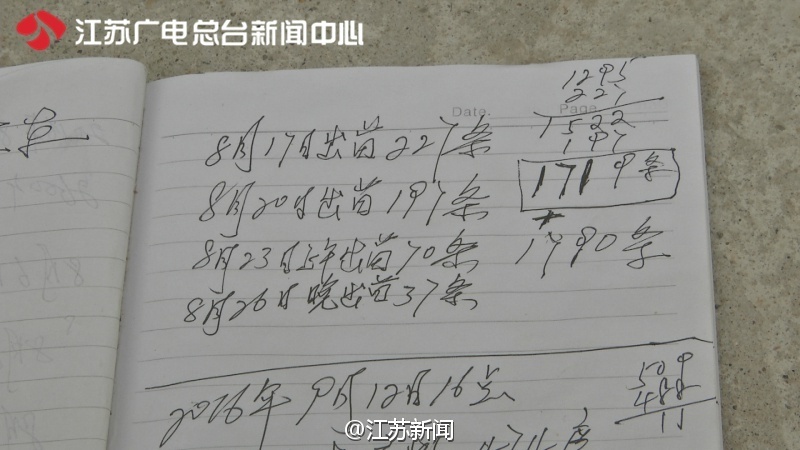 江苏广电总台新闻中心
Date.
Page
1295
227
1522
197
1719条
1790条
8月17日出苗227条
8月20日出苗197条
8月23日上午出苗70条
8月26日晚出苗37条
2016年9月12日16点
509
488
11
@江苏新闻